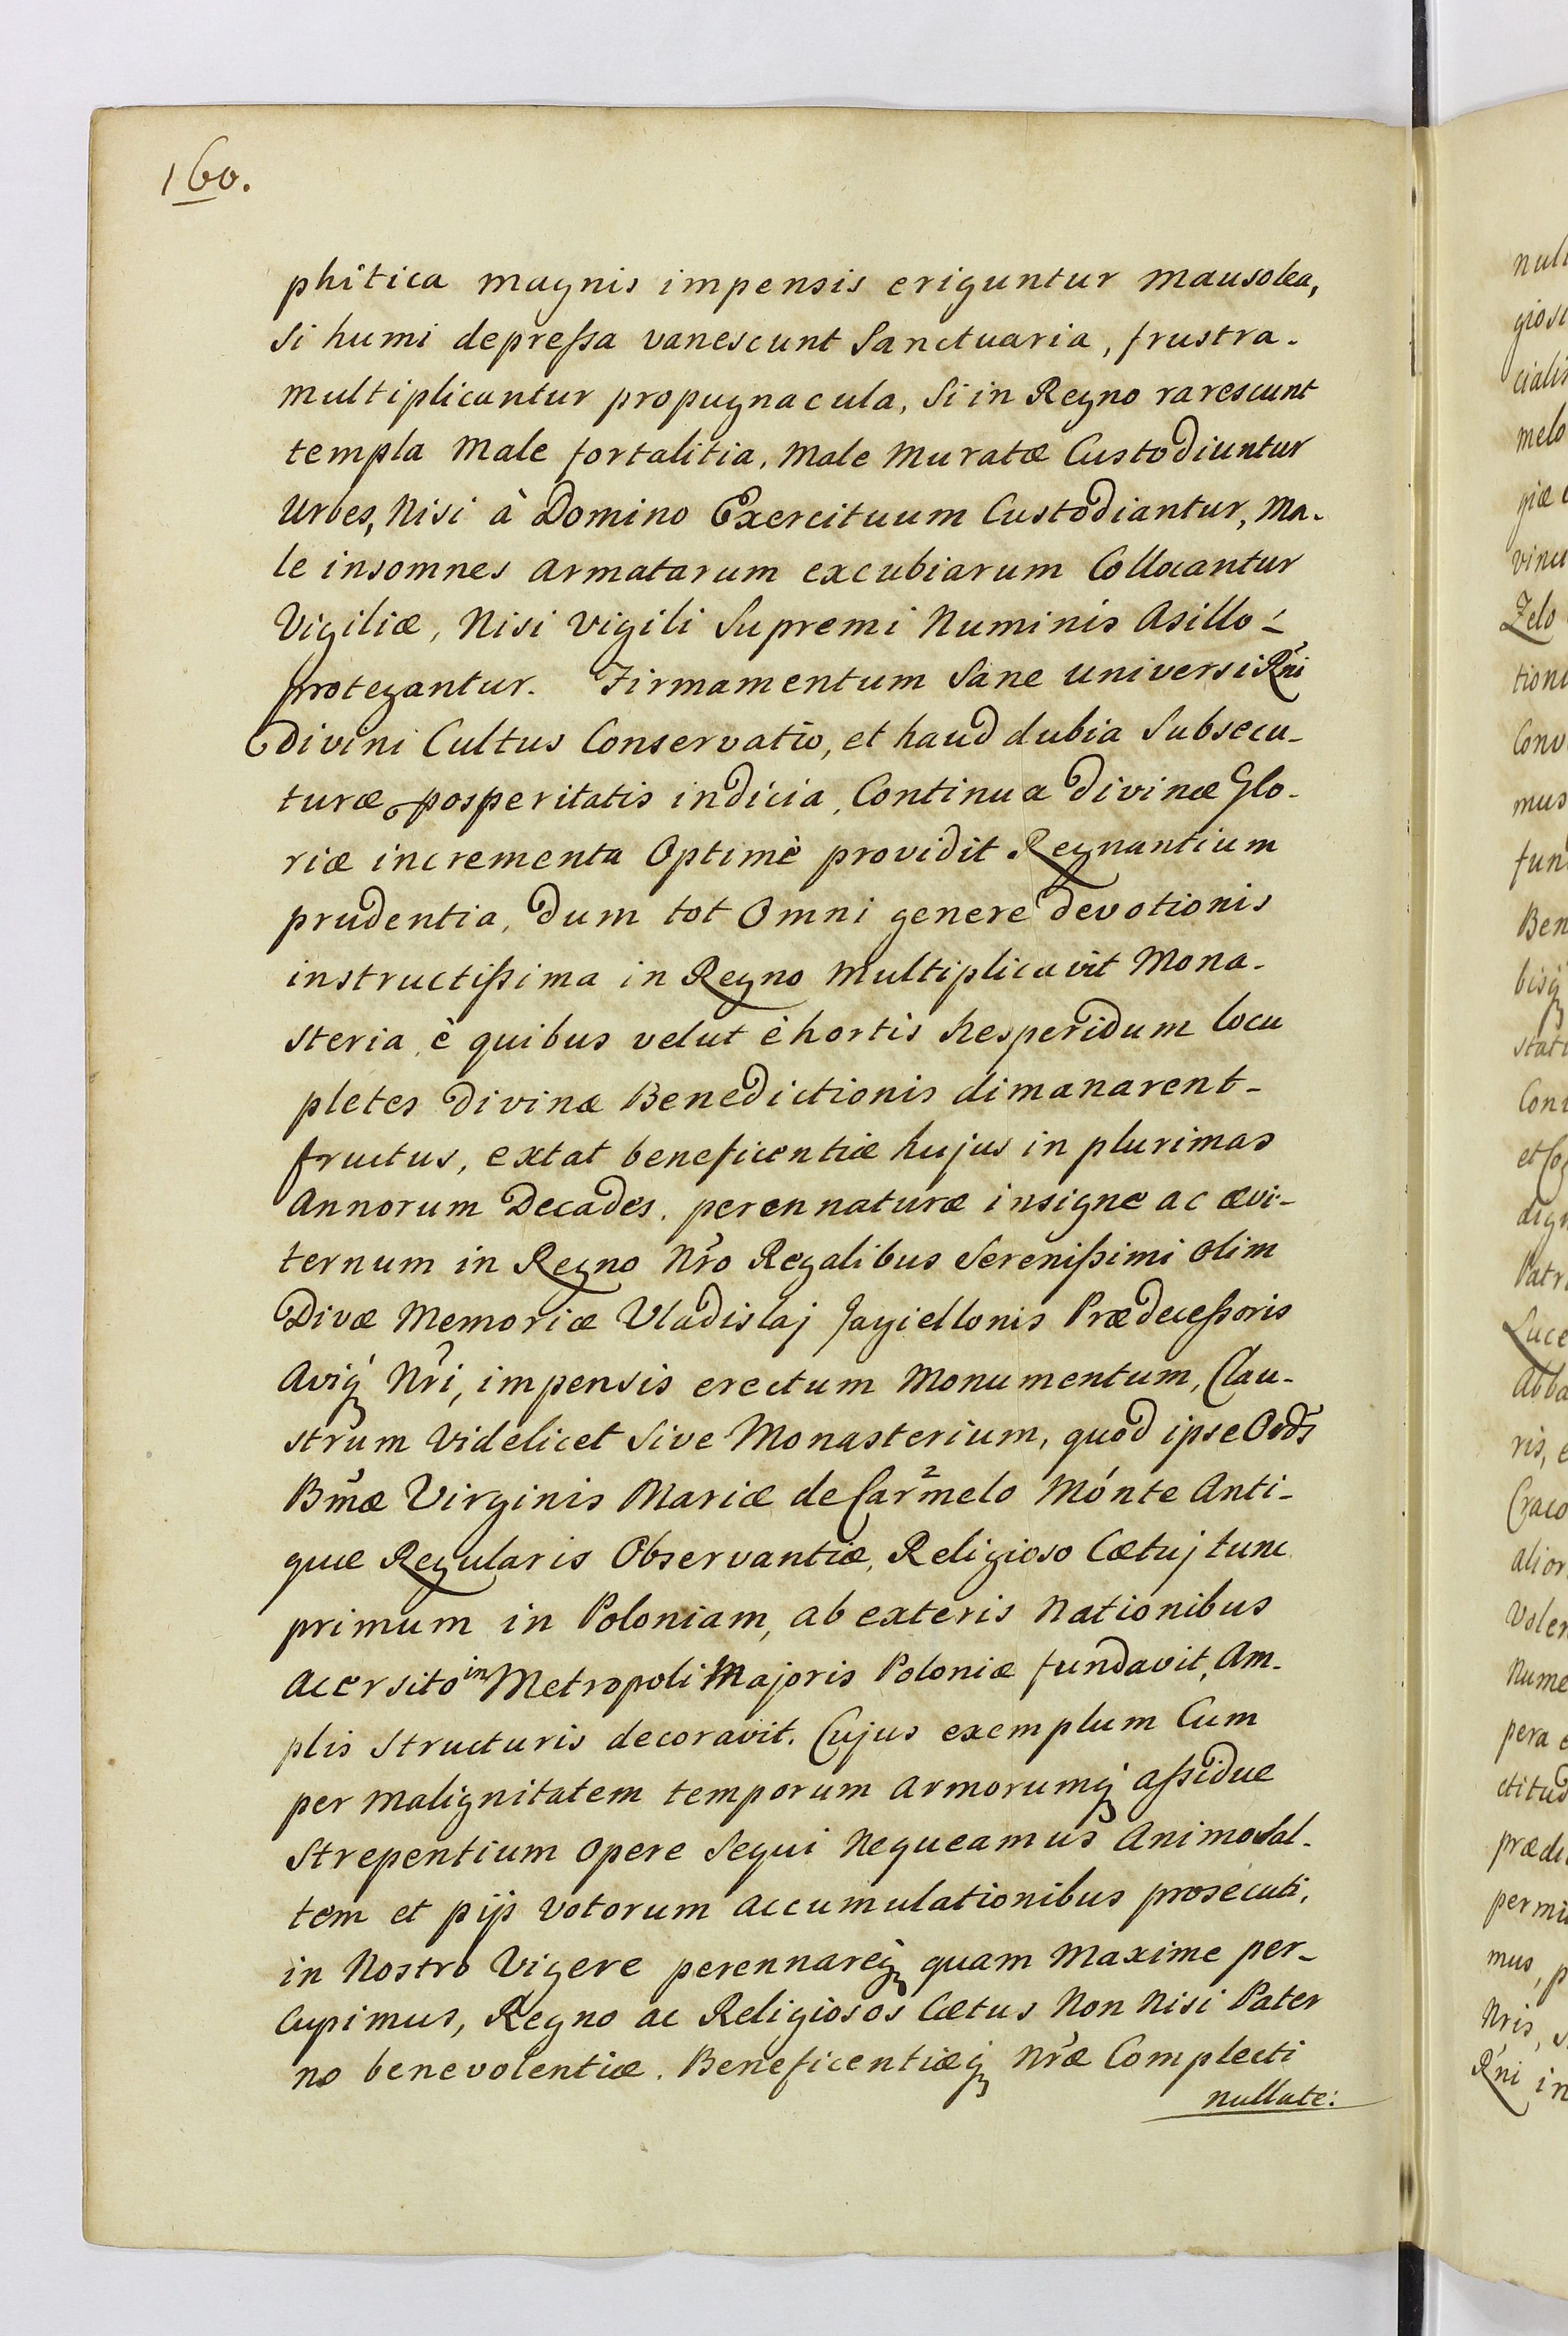 160.
phitica magnis impensis eriguntur mausolea,
si humi depreßa vanescunt Sanctuaria, frustra.
multiplicantur propugnacula, Si in Regno rarescunt
templa Male fortalitia, Male Muratæ Custodiuntur
Urbes, Nisi à Domino Exercituum Custodiantur, Ma-
le insomnes armatarum excubiarum Collocantur
Vigiliæ, Nisi vigili Supremi Numinis Asillo-
protegantur. Firmamentum Sane universi Rñi
Divini Cultus Conservatio, et haud dubia Subsecu-
turæ posperitatis indicia, Continua Divinæ Glo-
riæ incrementa Optimè providit Regnantium
prudentia, Dum tot Omni genere devotionis
instructißima in Regno Multiplicavit Mona-
steria, è quibus velut è hortis Hesperidum locu
pletes Divinæ Benedictionis dimanarent-
fructus, extat beneficentiæ hujus in plurimas
Annorum Decades, perennaturæ insigne ac ævi-
ternum in Regno Nr̃o Regalibus Serenißimi olim
Divæ Memoriæ Vladislaj Jagiellonis Prædeceßoris
Aviq̃ Nr̃i, impensis erectum Monumentum, Clau-
strum Videlicet Sive Monasterium, quod ipse
Bm̃æ Virginis Mariæ de Car²melo Mónte Anti-
quæ Regularis Observantiæ, Religioso Cætuj tunc
primum in Poloniam, ab exteris Nationibus
Acersito in Metropoli Majoris Poloniæ fundavit, Am-
plis Structuris decoravit. Cujus exemplum Cum
per Malignitatem temporum armorumq̃ aßidue
Strepentium Opere Sequi Nequeamus Animo Sal-
tem et pijs Votorum accumulationibus prosecuti,
in Nostro Vigere perennareq̃ quam Maxime per-
Cupimus, Regno ac Religiosos Cætus Non Nisi Pater
no benevolentiæ. Beneficentiæq̃ Nr̃æ Complecti
nullate:
nul
cialis
melo
giæ
vinc
Zelo
tion
Conv
mus
fun
Ben
bisq̃
stat
Con
dign
Patr
Luce
Abba
ris, e
Craco
alior
Volen
Nume
pera
ctitud
prædi
permi
mus, p
Nris,
Rñi in